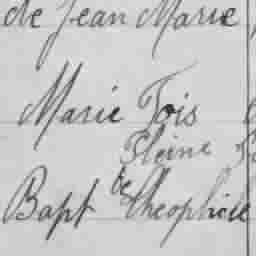 de Jean Marie
Marie Fois
Pleine
Bapt te Theophile